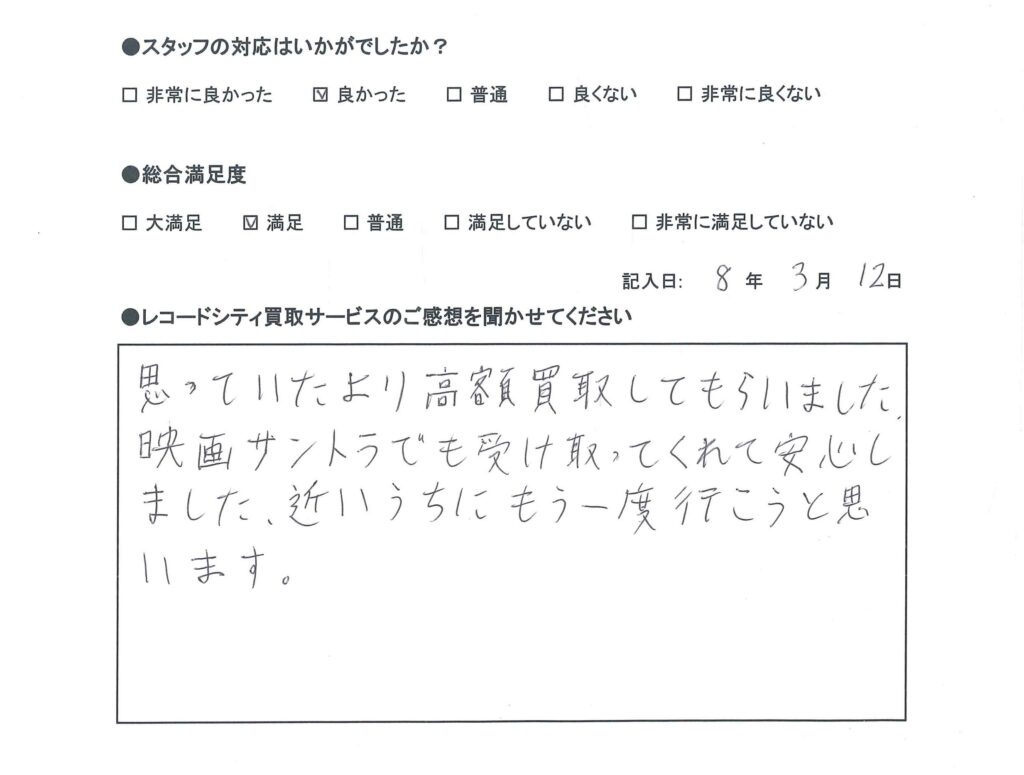 ●スタッフの対応はいかがでしたか？
□ 非常に良かった ☑ 良かった □ 普通 □ 良くない □ 非常に良くない
●総合満足度
□ 大満足 ☑ 満足 □ 普通 □ 満足していない □ 非常に満足していない
記入日: 8 年 3 月 12 日
●レコードシティ買取サービスのご感想を聞かせてください
思っていたより高額買取してもらいました、
映画サントラでも受け取ってくれて安心し
ました、近いうちにもう一度行こうと思
います。